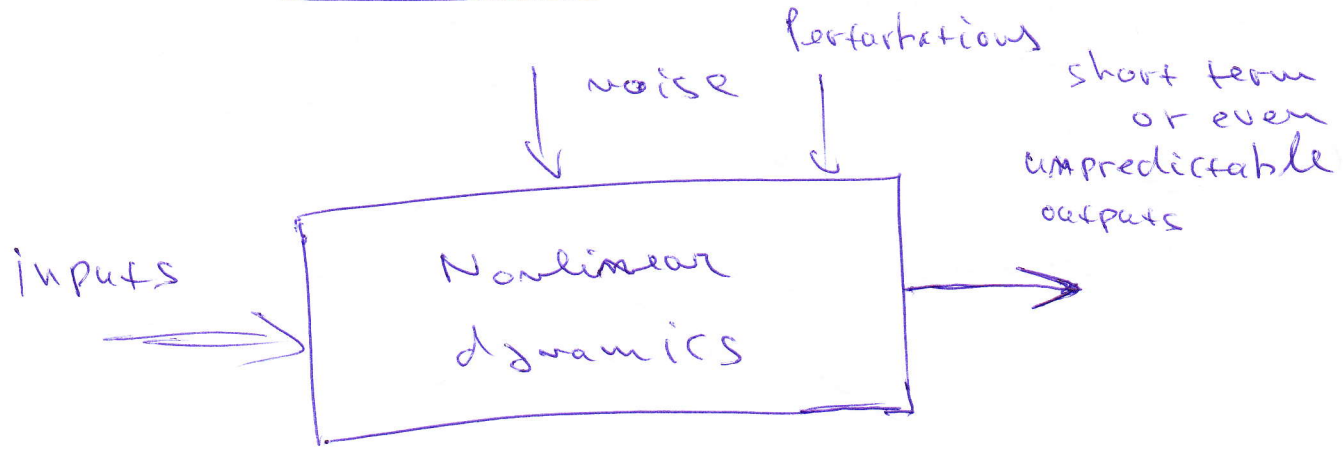 Perturbations
noise
short term
or even
unpredictable
outputs
inputs
Nonlinear
dynamics